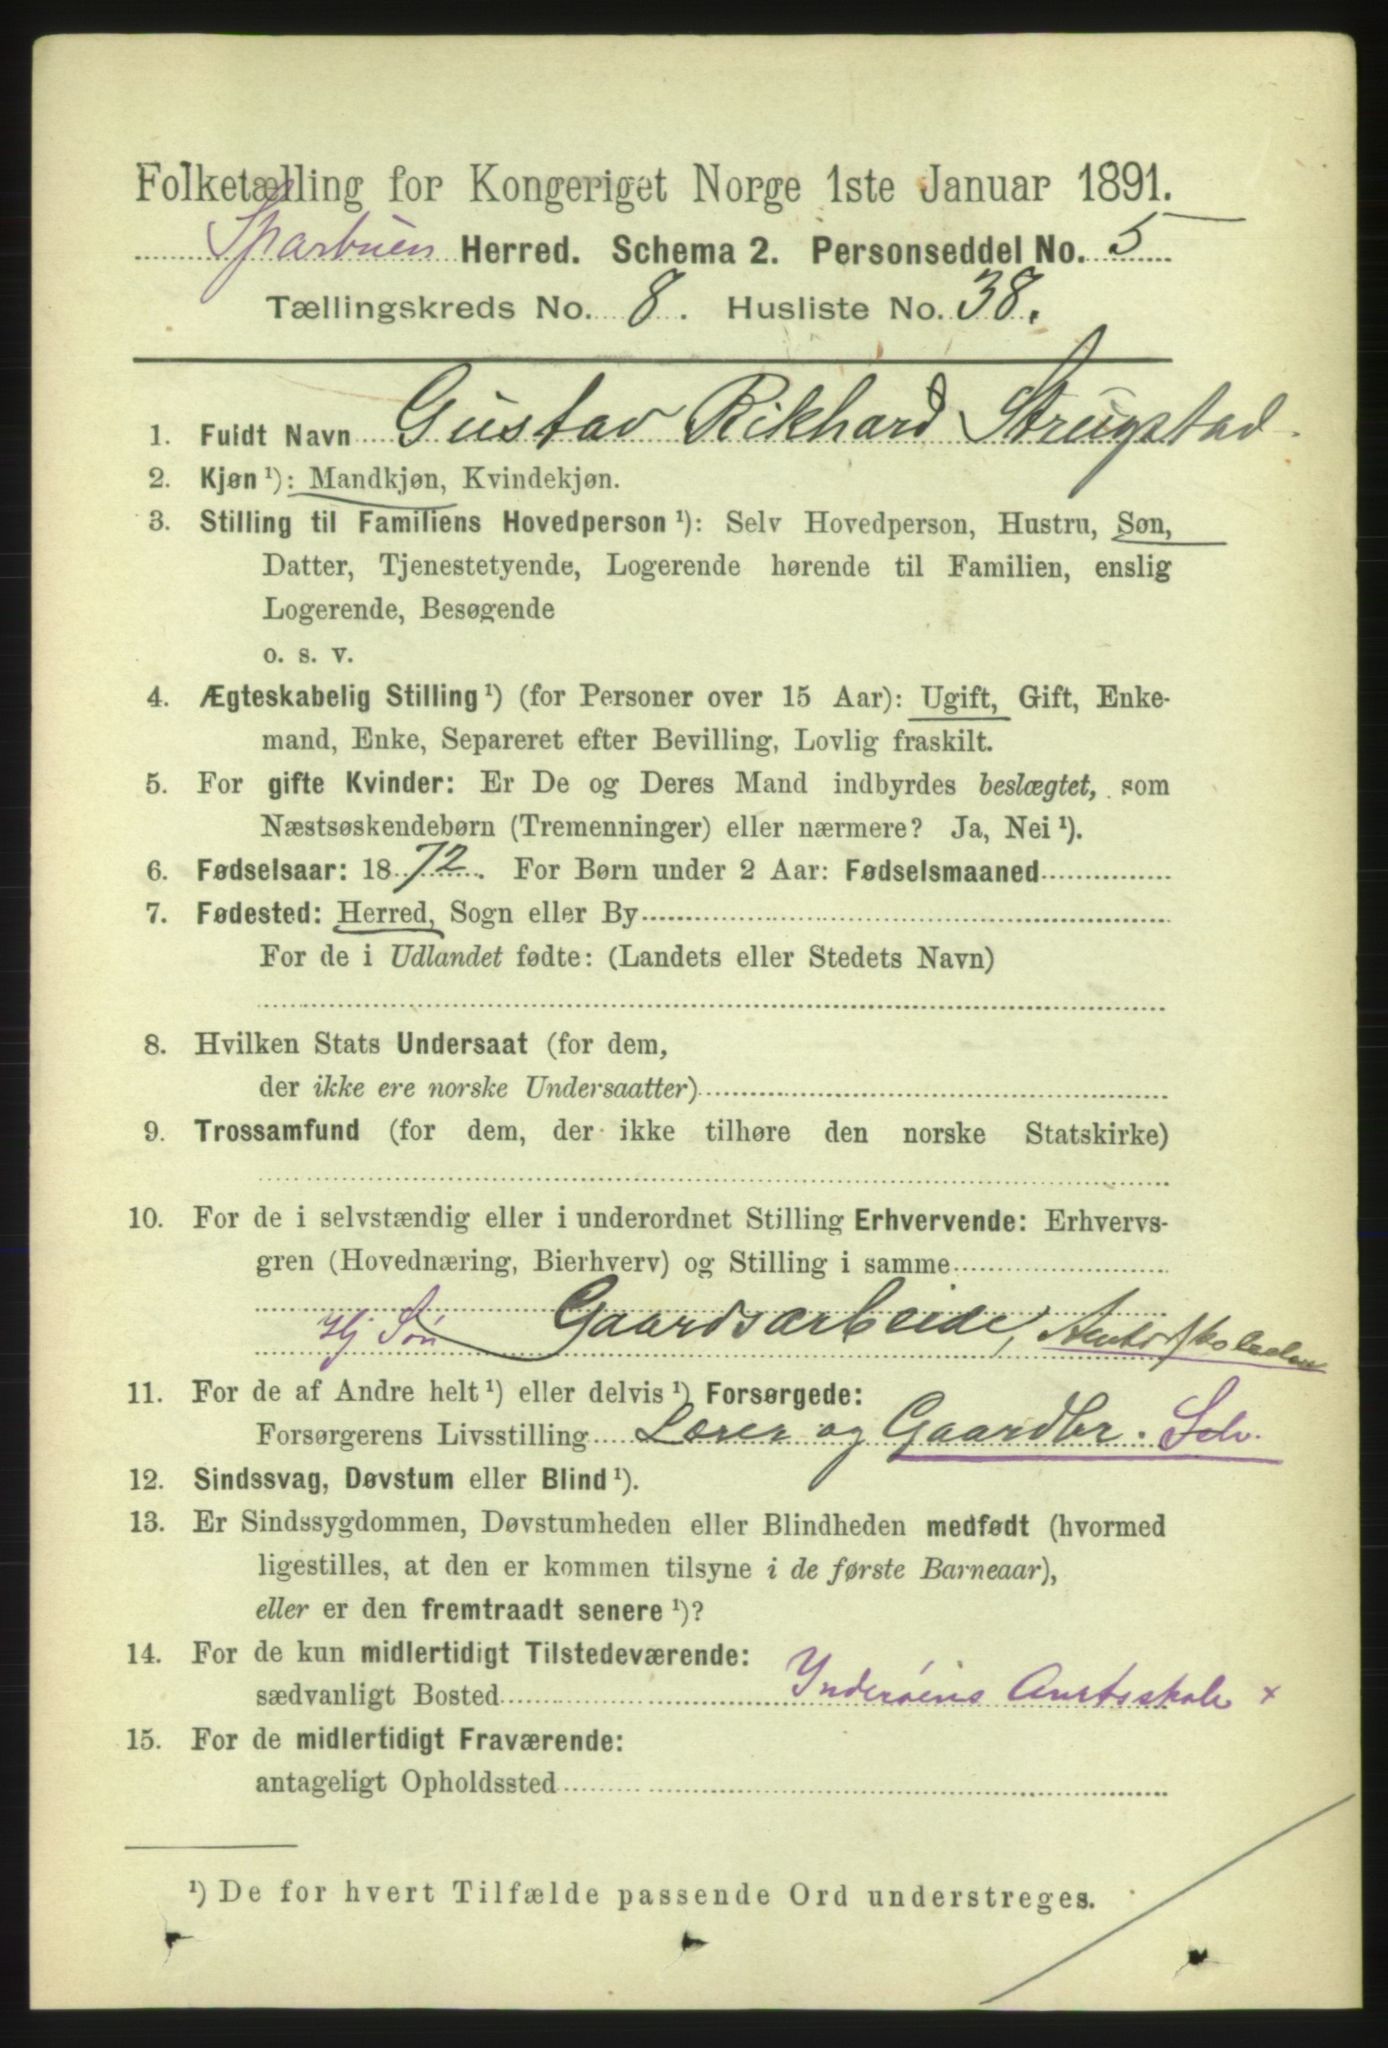 Folketælling for Kongeriget Norge 1ste Januar 1891.
Sparbuen Herred. Schema 2. Personseddel No. 5
Tællingskreds No. 8. Husliste No. 38.
1. Fuldt Navn Gustav Rikhard Strugstad.
2. Kjøn ¹): Mandkjøn, Kvindekjøn.
3. Stilling til Familiens Hovedperson ¹): Selv Hovedperson, Hustru, Søn,
Datter, Tjenestetyende, Logerende hørende til Familien, enslig
Logerende, Besøgende
o. s. v.
4. Ægteskabelig Stilling ¹) (for Personer over 15 Aar): Ugift, Gift, Enke-
mand, Enke, Separeret efter Bevilling, Lovlig fraskilt.
5. For gifte Kvinder: Er De og Deres Mand indbyrdes beslægtet, som
Næstsøskendebørn (Tremenninger) eller nærmere? Ja, Nei ¹).
6. Fødselsaar: 1872. For Børn under 2 Aar: Fødselsmaaned
7. Fødested: Herred, Sogn eller By
For de i Udlandet fødte: (Landets eller Stedets Navn)
8. Hvilken Stats Undersaat (for dem,
der ikke ere norske Undersaatter)
9. Trossamfund (for dem, der ikke tilhøre den norske Statskirke)
10. For de i selvstændig eller i underordnet Stilling Erhvervende: Erhvervs-
gren (Hovednæring, Bierhverv) og Stilling i samme
Hj Søn Gaardsarbeide,
11. For de af Andre helt ¹) eller delvis ¹) Forsørgede:
Forsørgerens Livsstilling Lærer og Gaardbr. Selv.
12. Sindssvag, Døvstum eller Blind ¹).
13. Er Sindssygdommen, Døvstumheden eller Blindheden medfødt (hvormed
ligestilles, at den er kommen tilsyne i de første Barneaar),
eller er den fremtraadt senere ¹)?
14. For de kun midlertidigt Tilstedeværende:
sædvanligt Bosted Inderøens Amtsskole x
15. For de midlertidigt Fraværende:
antageligt Opholdssted
¹) De for hvert Tilfælde passende Ord understreges.